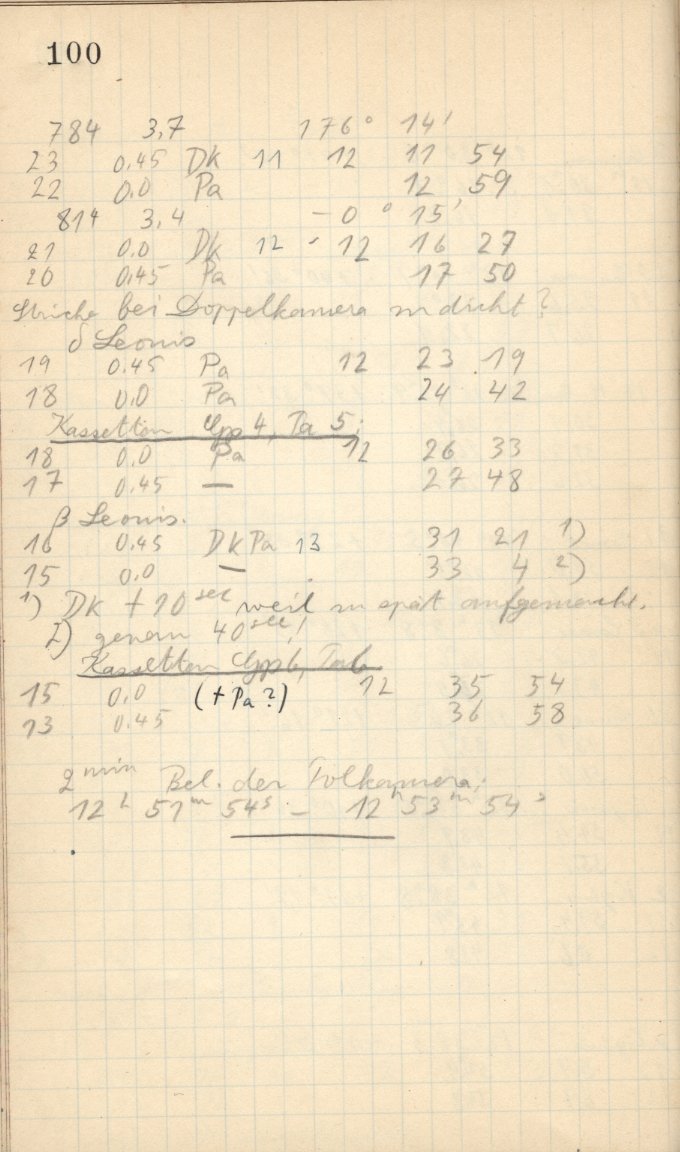 100
784 3,7 176° 14'
23 0.45 Dk 11 12 11 54
22 0.0 Pa 12 59
814 3,4 - 0° 15'
21 0.0 Dk 12 - 12 16 27
20 0.45 Pa 17 50
Striche bei Doppelkamera zu dicht?
δ Leonis
19 0.45 Pa 12 23 19
18 0.0 Pa 24 42
Kassetten 4, Pa 5;
18 0.0 Pa 12 26 33
17 0.45 — 27 48
β Leonis.
16 0.45 DkPa 13 31 21 1)
15 0.0 — 33 4 2)
1) Dk + 10 sec weil zu spät aufgemacht.
2) genau 40 sec!
Kassetten
15 0.0 (+Pa?) 12 35 54
13 0.45 36 58
2 min Bel. der Polkamera;
12 h 51 m 54 s — 12 h 53 m 54 s